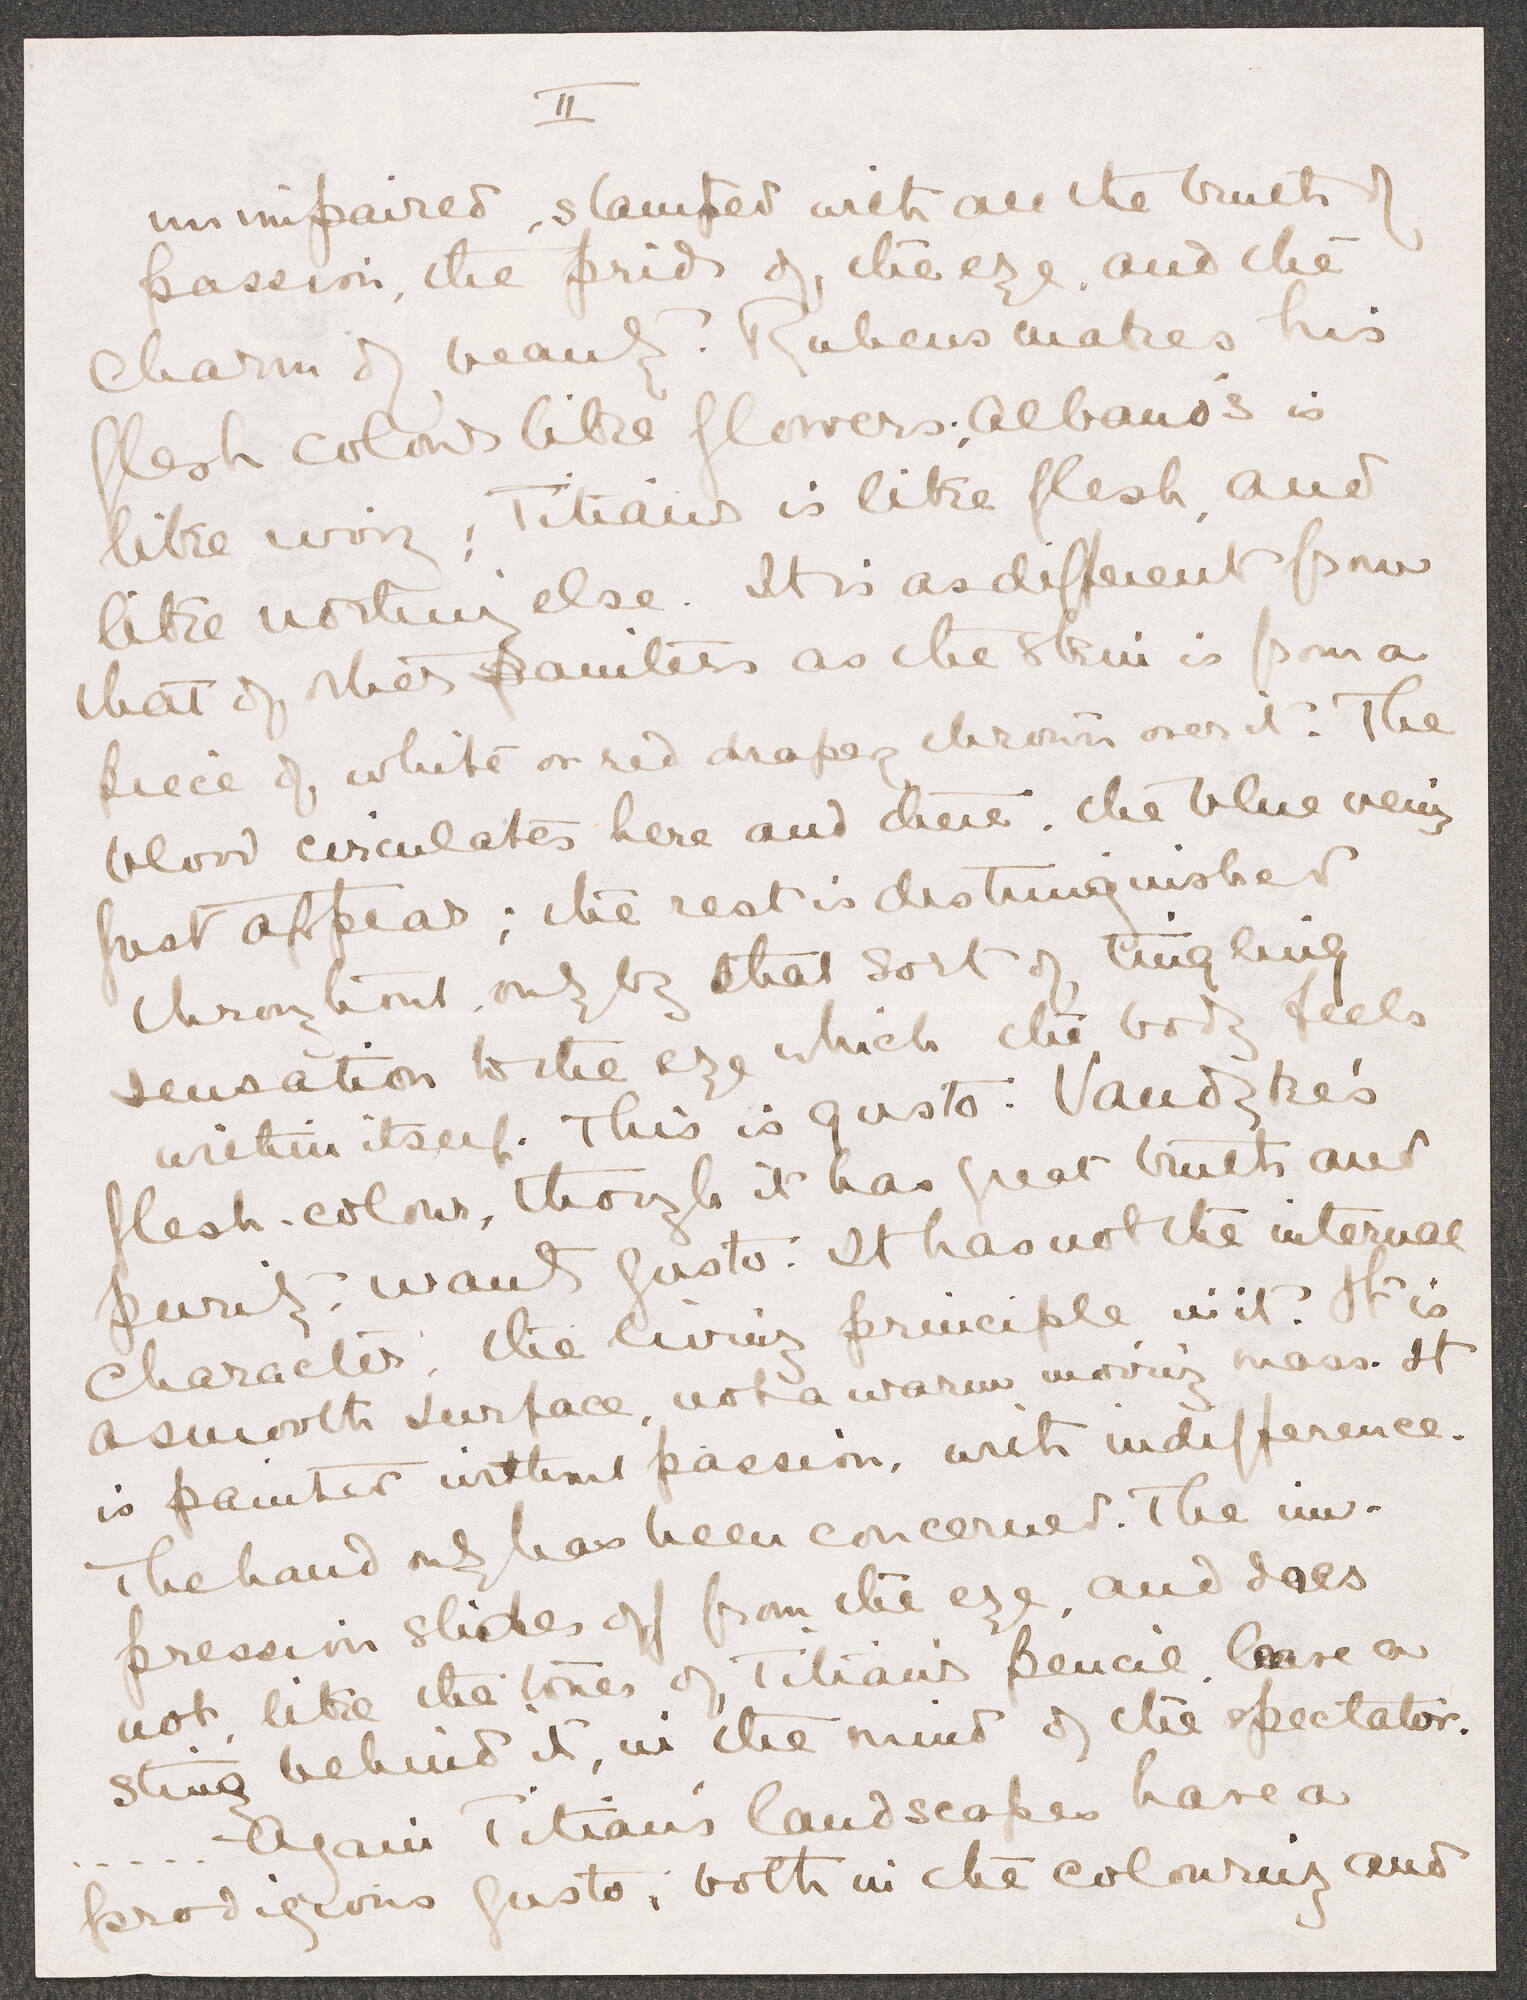 II
unimpaired, stamped with all the truth of
passion, the pride of, the eye, and the
charm of beauty. Rubens makes his
flesh colour like flowers; Albano's is
like ivory; Titian's is like flesh, and
like nothing else. It is as different from
that of other painters as the skin is from a
piece of, white or red drapery thrown over it. The
blood circulates here and there, the blue veins
just appear; the rest is distinguished
throughout, only by that sort of tingling
sensation to the eye which the body feels
within itself. This is gusto. Vandyke's
flesh-colour, though it has great truth and
purity, wants gusto. It has not the internal
character, the living principle in it. It is
a smooth surface, not a warm moving mass. It
is painted without passion, with indifference.
The hand only has been concerned. The im-
pression slides off from the eye, and does
not, like the tones of Titian's pencil, leave a
sting behind it, in the mind of the spectator.
...... Again Titian's landscapes have a
prodigious gusto, both in the colouring and